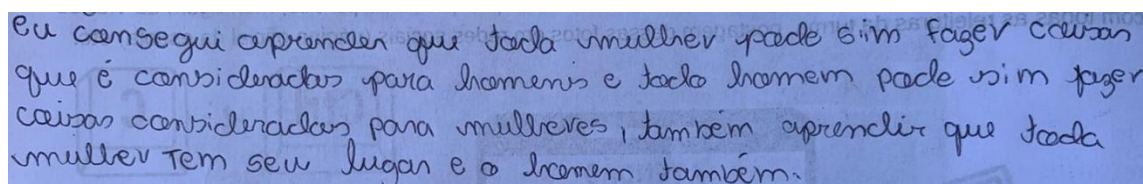 eu consegui aprender que toda mulher pode sim fazer coisas
que é consideradas para homens e todo homem pode sim fazer
coisas consideradas para mulheres, também aprendir que toda
mulher tem seu lugar e o homem também.